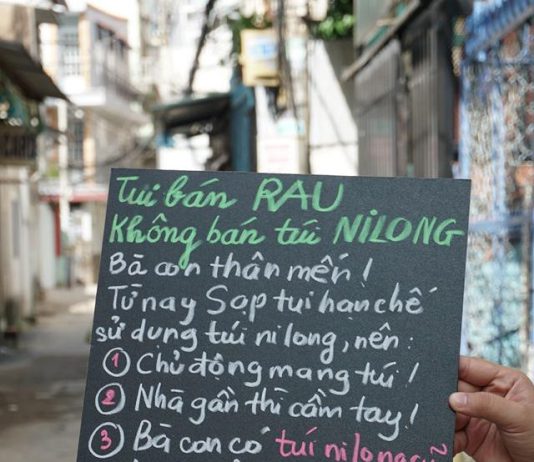 Tui bán RAU
Không bán túi NILONG
Bà con thân mến!
Từ nay Sạp tui hạn chế
sử dụng túi ni lông, nên:
1 Chủ động mang túi!
2 Nhà gần thì cầm tay!
3 Bà con có túi ni lông cũ